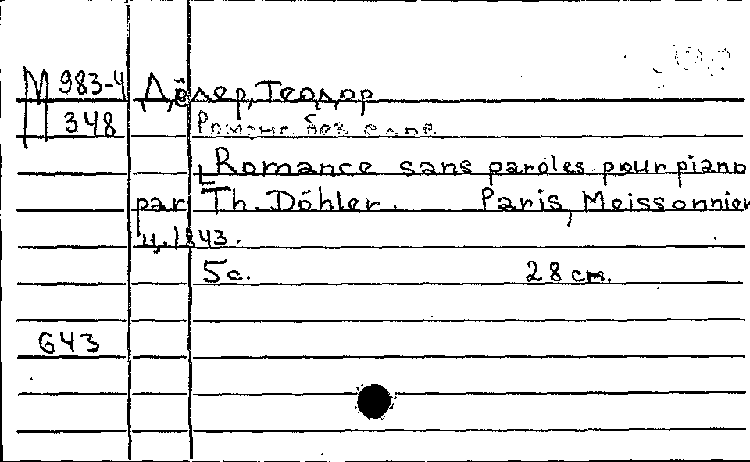 М 983-4 Дёлер, Теодор
348 Романс без слов
Romance sans paroles pour piano
par Th. Döhler. Paris, Meissonnier
ц. 1843.
5 с. 28 cm.
643